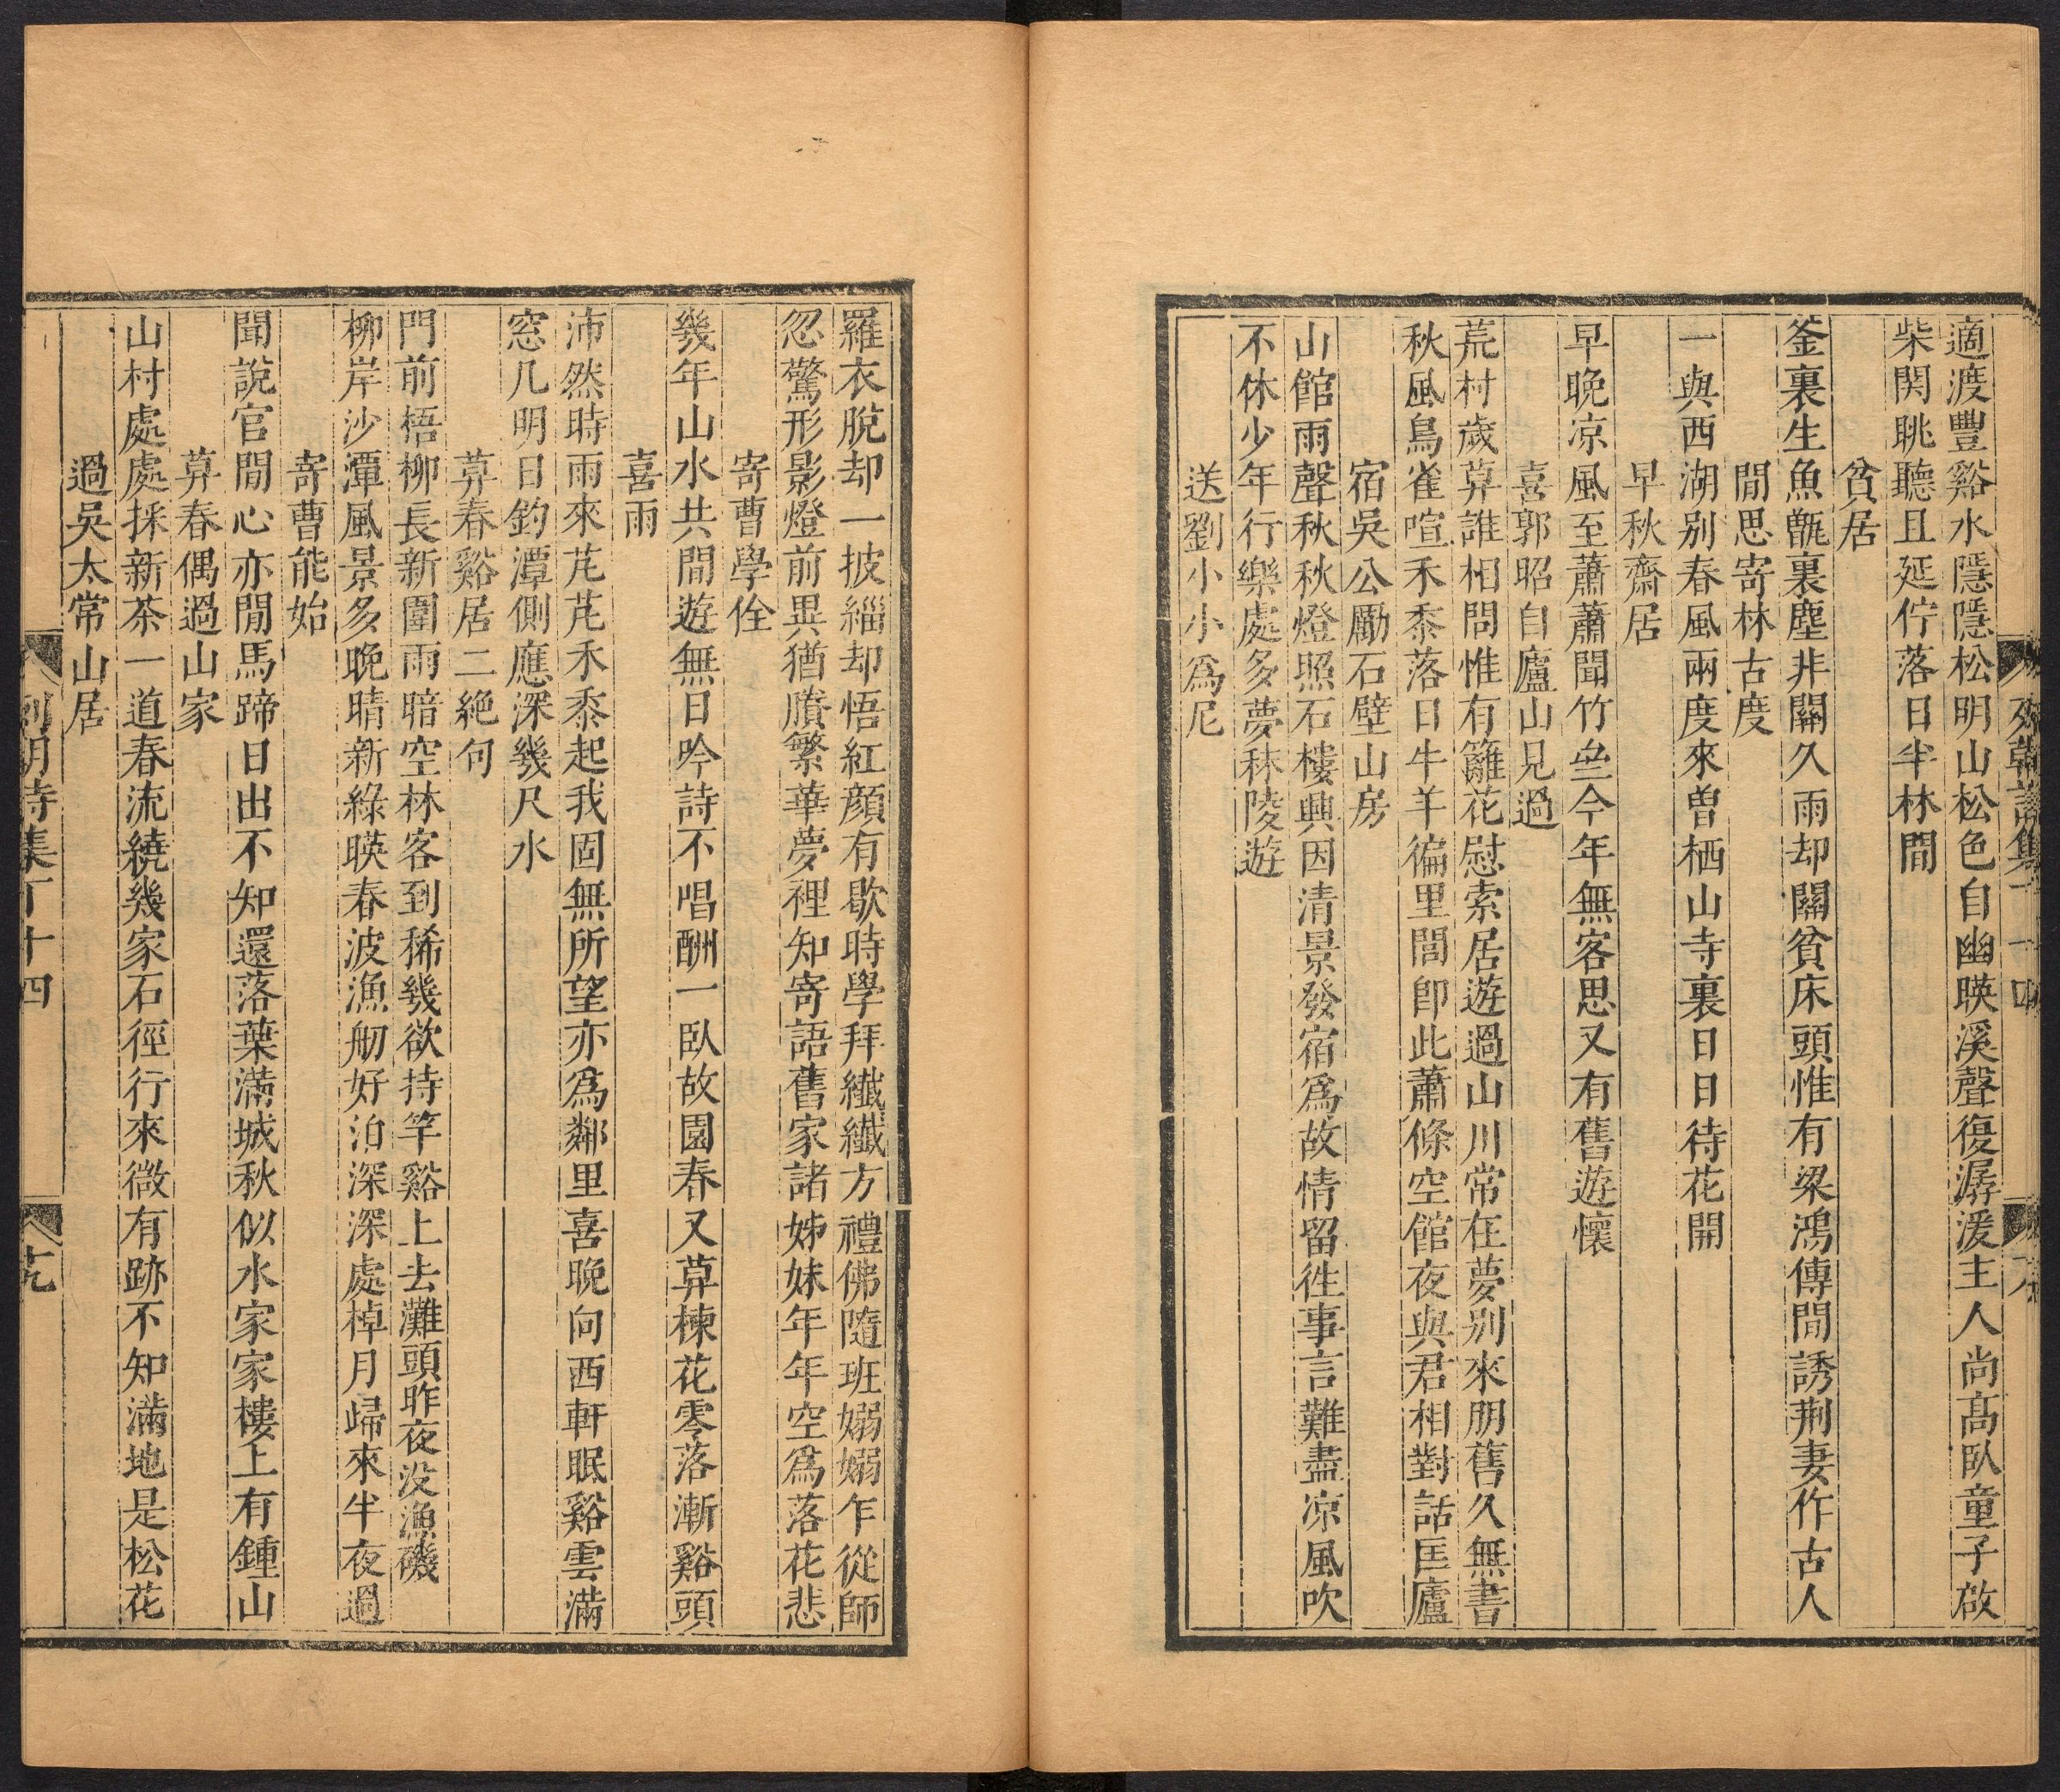 適渡豐谿水隱隱松明山松色自幽暎溪聲復潺湲主人尚高臥童子啟
柴関眺聽且延佇落日半林間
貧居
釜裏生魚甑裏塵非關久雨却關貧床頭惟有梁鴻傳閒誘荆妻作古人
閒思寄林古度
一與西湖别春風兩度來曽栖山寺裏日日待花開
早秋齋居
早晚凉風至蕭蕭聞竹垒今年無客思又有舊遊懷
喜郭昭自廬山見過
荒村歲莫誰相問惟有籬花慰索居遊過山川常在夢别來朋舊久無書
秋風鳥雀喧禾黍落日牛羊徧里閭卽此蕭條空館夜與君相對話匡廬
宿吳公勵石壁山房
山館雨聲秋秋燈照石樓興因清景發宿爲故情留徃事言難盡凉風吹
不休少年行樂處多夢秣陵遊
送劉小小爲尼
羅衣脫却一披緇却悟紅顔有歇時學拜纖纖方禮佛隨班嫋嫋乍從師
忽驚形影燈前異猶賸繁華夢裡知寄語舊家諸姊妹年年空爲落花悲
寄曹學佺
幾年山水共閒遊無日吟詩不唱酬一臥故園春又莫楝花零落漸谿頭
喜雨
沛然時雨來芃芃禾黍起我固無所望亦爲鄰里喜晚向西軒眠谿雲滿
窓几明日釣潭側應深幾尺水
莫春谿居二絶句
門前梧柳長新圍雨暗空林客到稀幾欲持竿谿上去灘頭昨夜没漁磯
柳岸沙潭風景多晚晴新綠暎春波漁舠好泊深深處棹月歸來半夜過
寄曹能始
聞說官閒心亦閒馬蹄日出不知還落葉滿城秋似水家家樓上有鍾山
莫春偶過山家
山村處處採新茶一道春流繞幾家石徑行來微有跡不知滿地是松花
過吳太常山居
列朝詩集丁十四
十九